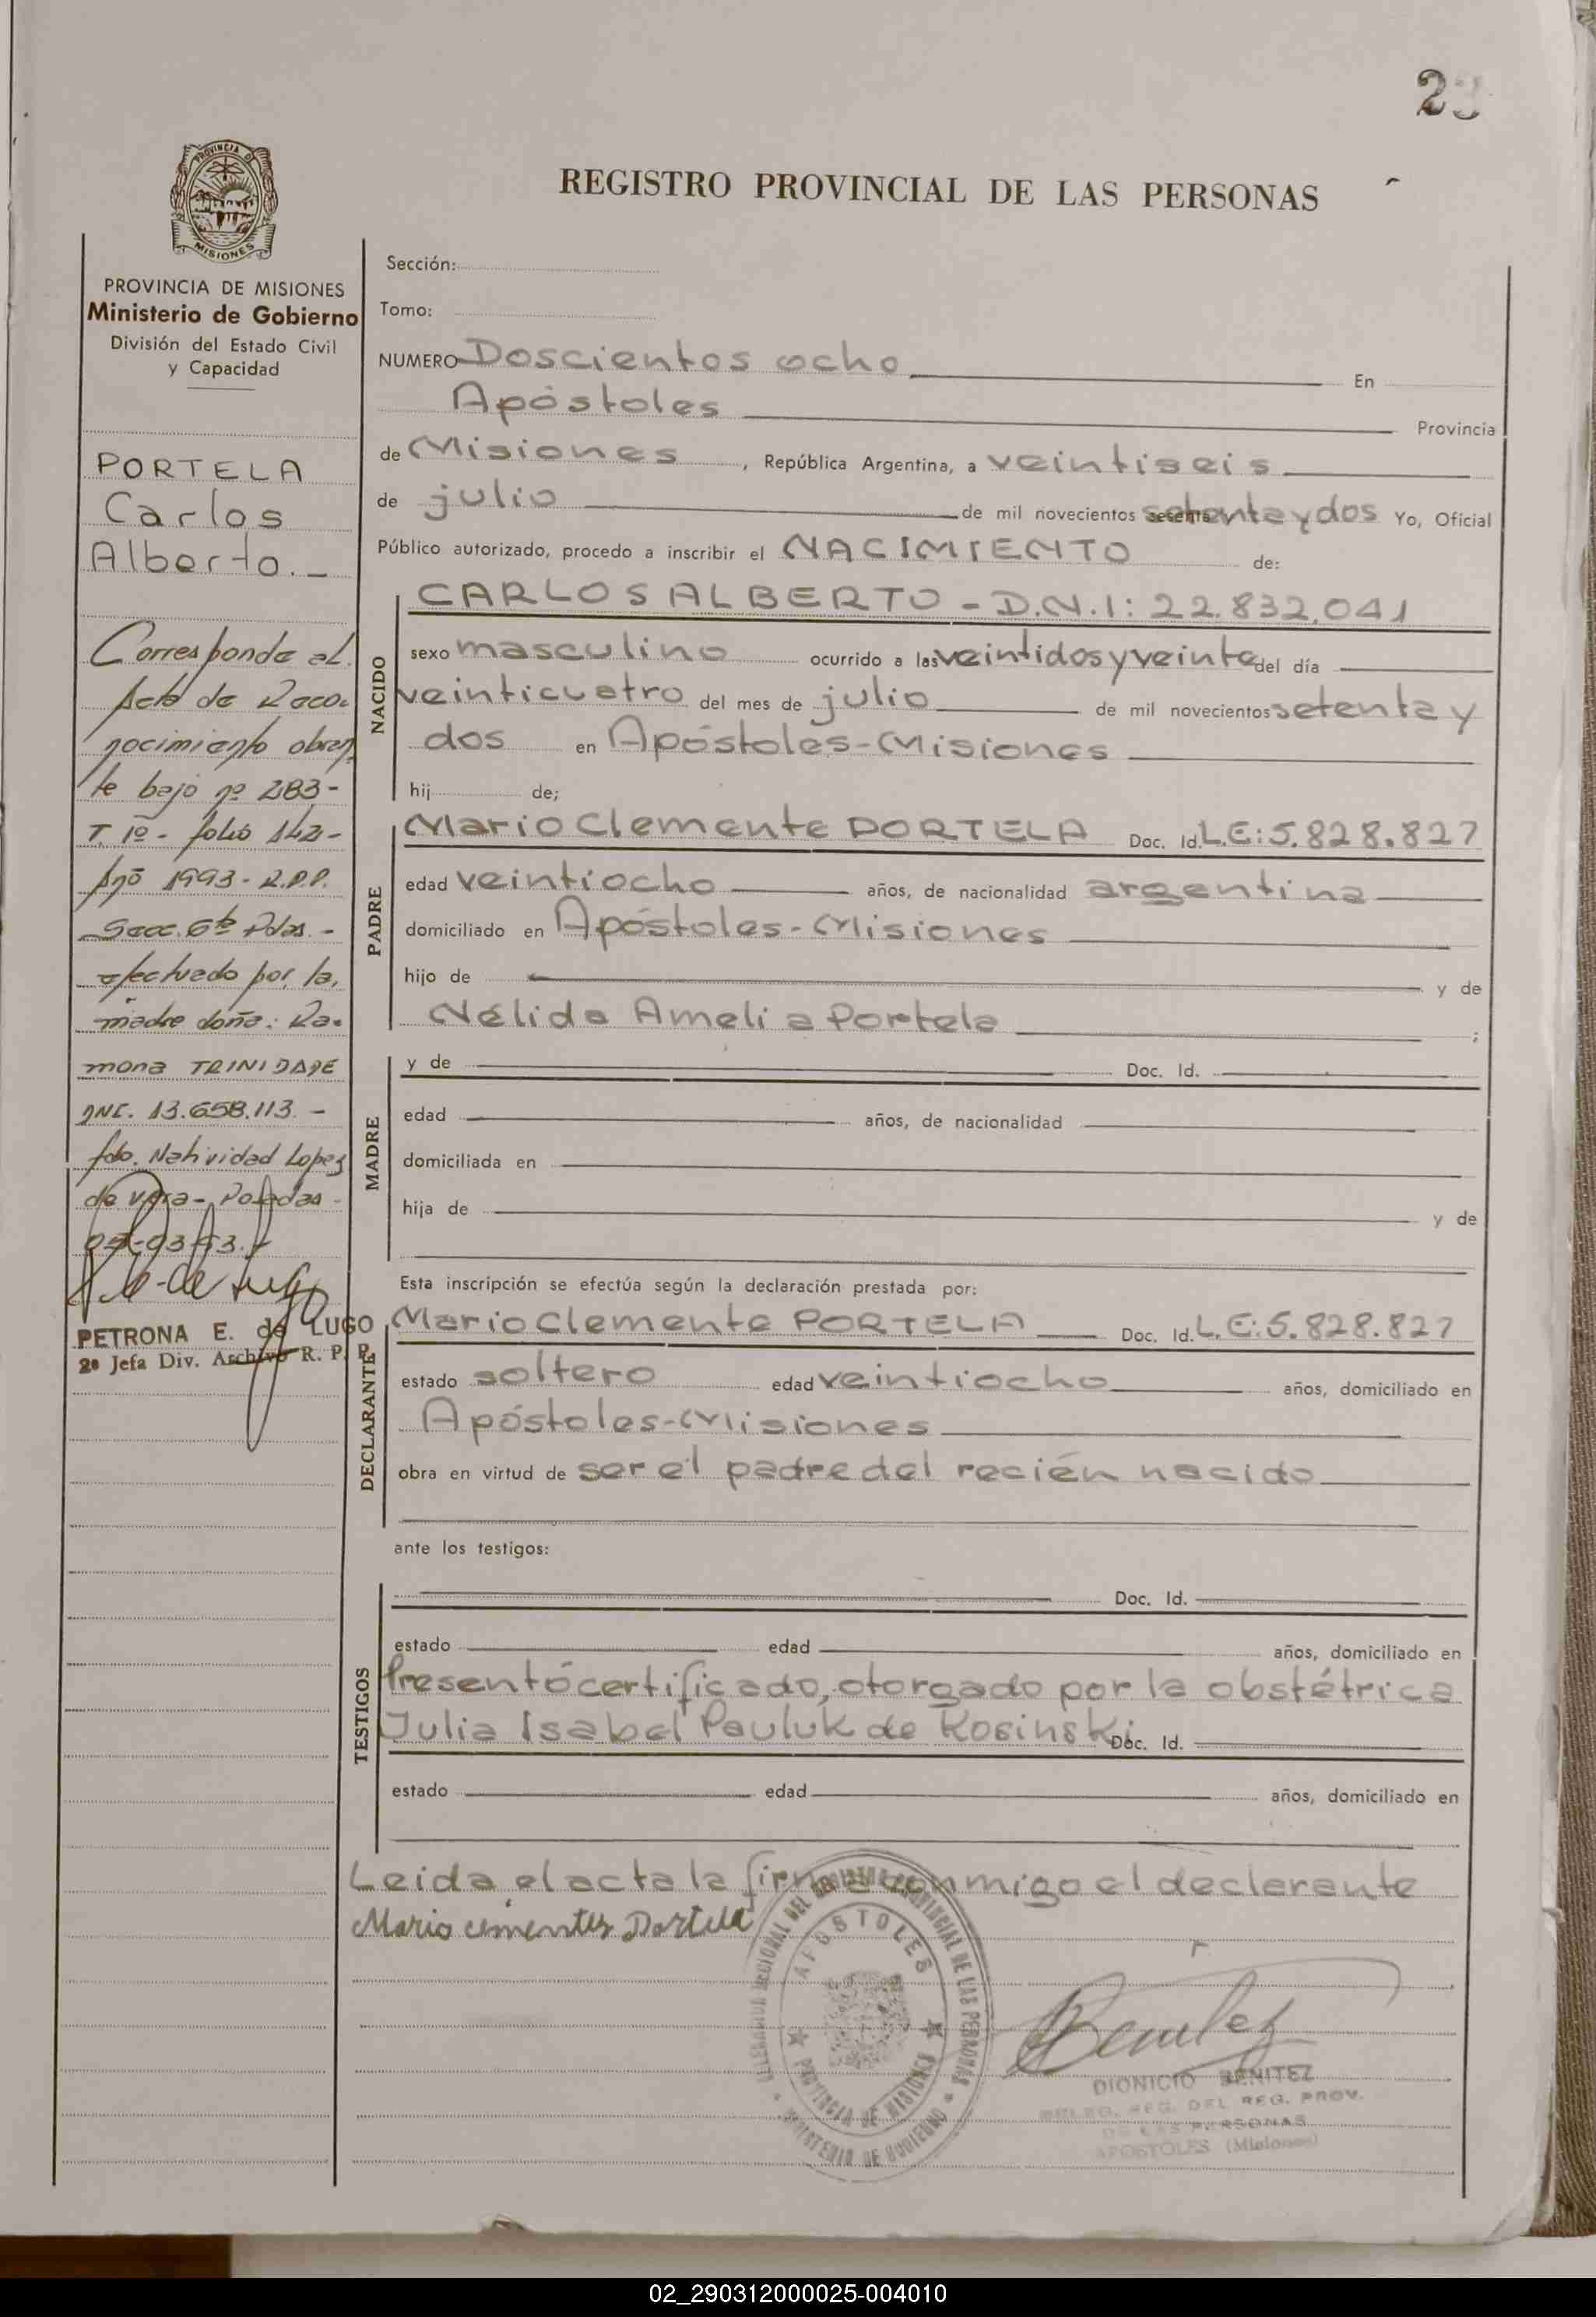 23
REGISTRO PROVINCIAL DE LAS PERSONAS
PROVINCIA DE MISIONES
Ministerio de Gobierno
División del Estado Civil
y Capacidad
PORTELA
Carlos
Alberto.-
Corresponde al
Acto de Reco-
nocimiento obran
te bajo nº 283-
T. 1º - folio 142-
Año 1993 - R.P.P.
Secc. 6ta Pdas. -
efectuado por la,
madre doña: Ra-
mona TRINIDADE
DNI. 13.658.113. -
fdo. Natividad Lopez
de Vera - Posadas -
PETRONA E. de LUGO
2º Jefa Div. Archivo R. P. P.
Sección:
Tomo:
NUMERO Doscientos ocho En
Apóstoles Provincia
de Misiones, República Argentina, a veintiseis
de julio de mil novecientos setenta y dos Yo, Oficial
Público autorizado, procedo a inscribir el NACIMIENTO de:
NACIDO
CARLOS ALBERTO - D.N.I: 22.832.041
sexo masculino ocurrido a las veintidos y veinte del día
veinticuatro del mes de julio de mil novecientos setenta y
dos en Apóstoles-Misiones
hij de;
PADRE
Mario Clemente PORTELA Doc. Id. L.E: 5.828.827
edad veintiocho años, de nacionalidad argentina
domiciliado en Apóstoles-Misiones
hijo de y de
Nélida Amelia Portela ;
MADRE
y de Doc. Id.
edad años, de nacionalidad
domiciliada en
hija de y de
Esta inscripción se efectúa según la declaración prestada por:
DECLARANTE
Mario Clemente PORTELA Doc. Id. L.E: 5.828.827
estado soltero edad veintiocho años, domiciliado en
Apóstoles-Misiones
obra en virtud de ser el padre del recién nacido
ante los testigos:
TESTIGOS
Doc. Id.
estado edad años, domiciliado en
Presentó certificado, otorgado por la obstétrica
Julia Isabel Pauluk de Kosinski Doc. Id.
estado edad años, domiciliado en
Leida el acta la firma conmigo el declarante
Mario Clementes Portela
APOSTOLES
PROVINCIA DE MISIONES
MINISTERIO DE GOBIERNO
Benitez
DIONICIO BENITEZ
DELEG. REG. DEL REG. PROV.
DE LAS PERSONAS
APOSTOLES (Misiones)
02_290312000025-004010